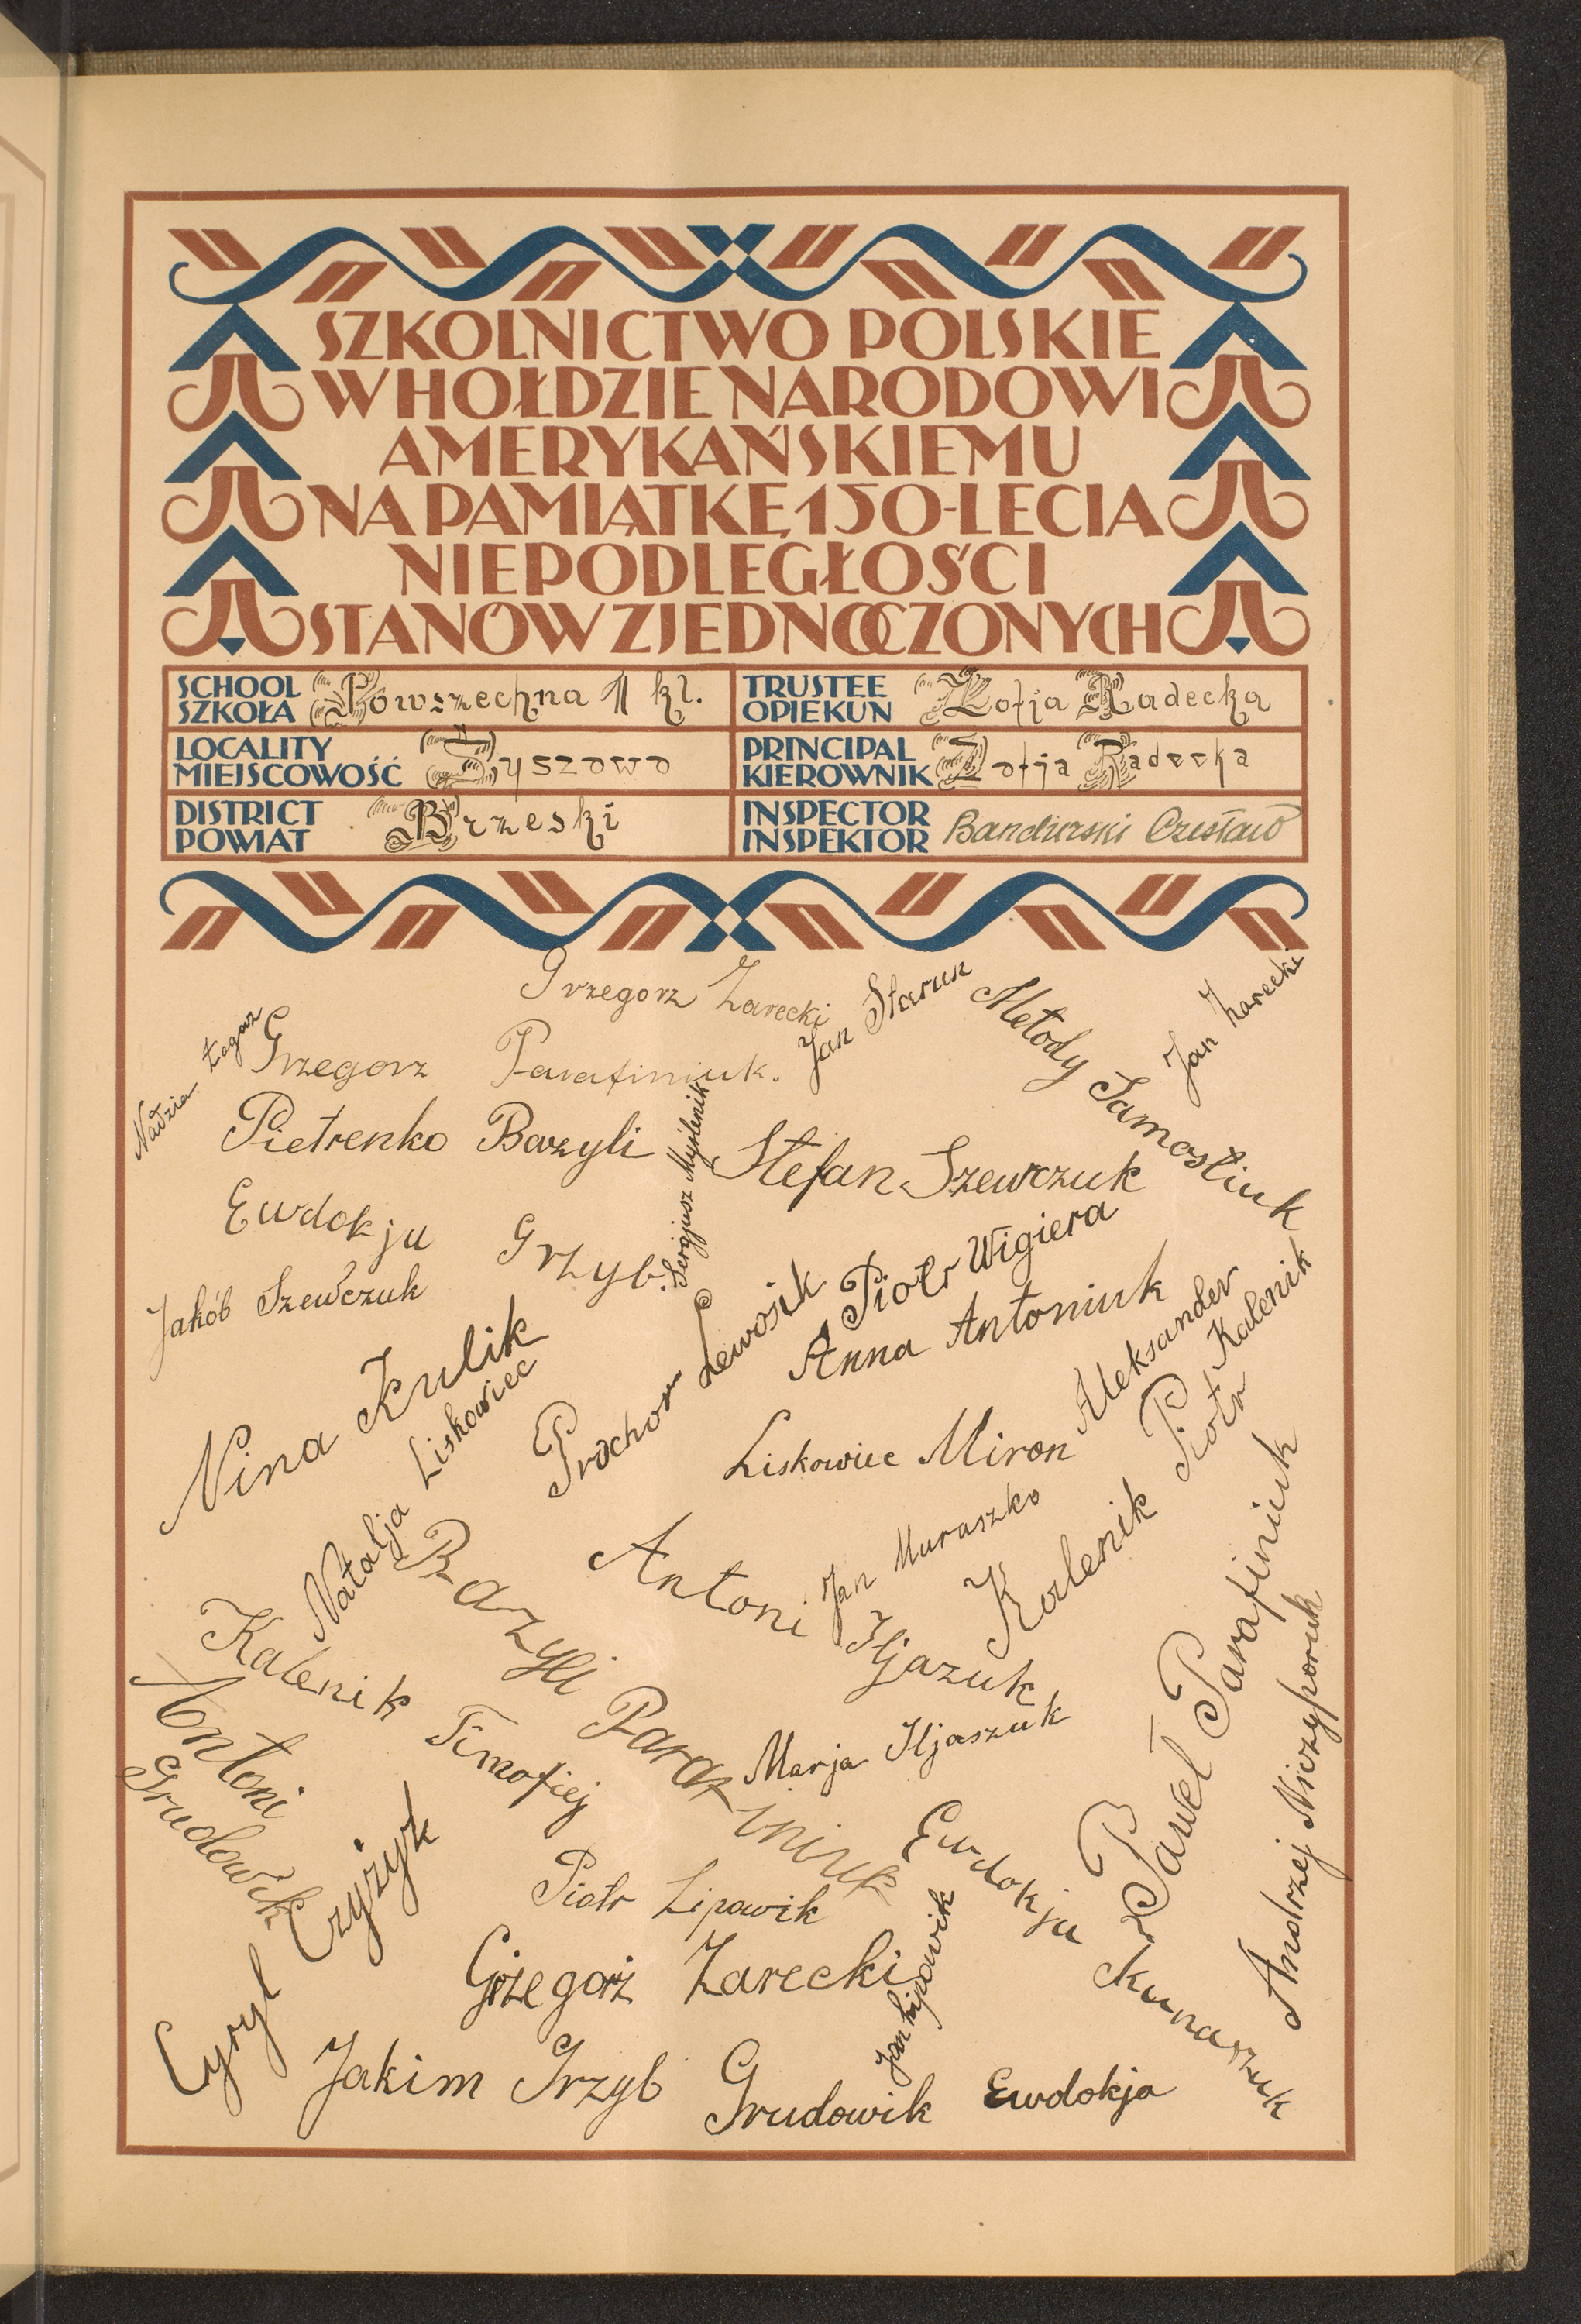 SZKOLNICTWO POLSKIE
W HOŁDZIE NARODOWI
AMERYKAŃSKIEMU
NA PAMIĄTKĘ 150-LECIA
NIEPODLEGŁOŚCI
STANÓW ZJEDNOCZONYCH
SCHOOL
SZKOŁA Powszechna 1 kl.
TRUSTEE
OPIEKUN Zofja Radecka
LOCALITY
MIEJSCOWOŚĆ
PRINCIPAL
KIEROWNIK Zofja Radecka
DISTRICT
POWIAT Brzeski
INSPECTOR
INSPEKTOR Bandurski Czesław
Grzegorz Zarecki
Jan Starun
Metody Samostiuk
Jan Zarecki
Nadzia
Grzegorz Parafiniuk.
Pietrenko Bazyli
Sergjusz Myślenik
Stefan Szewczuk
Ewdokja Grzyb.
Jakób Szewczuk
Piotr Wigiera
Prochor Lewosik
Anna Antoniuk
Nina Kulik
Natalja Liskowiec
Liskowiec Miron
Aleksander Kalenik
Kalenik Piotr
Jan Muraszko
Antoni Iljazuk
Bazyli Parafiniuk
Kalenik Timofiej
Antoni Grudowik
Marja Iljaszuk
Paweł Parafiniuk
Andrzej Niczyporuk
Cyryl Czyżyk
Piotr Lipowik
Ewdokja Kunaszuk
Grzegorz Zarecki
Jan Lipowik
Jakim Grzyb
Grudowik Ewdokja